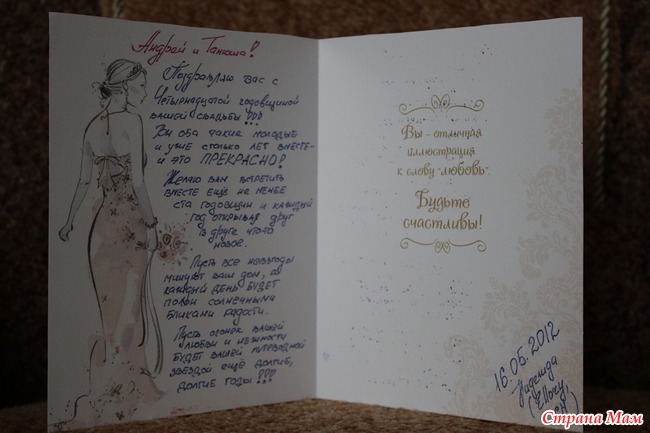 Андрей и Танюша!
Поздравляю вас с
Четырнадцатой годовщиной
вашей свадьбы!!!
Вы оба такие молодые
и уже столько лет вместе -
и это ПРЕКРАСНО!
Желаю вам встретить
вместе ещё не менее
ста годовщин и каждый
год открывая друг
в друге что-то
новое.
Пусть все невзгоды
минуют ваш дом, а
каждый день будет
полон солнечными
бликами радости.
Пусть огонёк вашей
любви и нежности
будет вашей путеводной
звездой ещё долгие,
долгие годы!!!
Вы - отличная
иллюстрация
к слову "любовь".
Будьте
счастливы!
16.05.2012
Надежда
Страна Мам